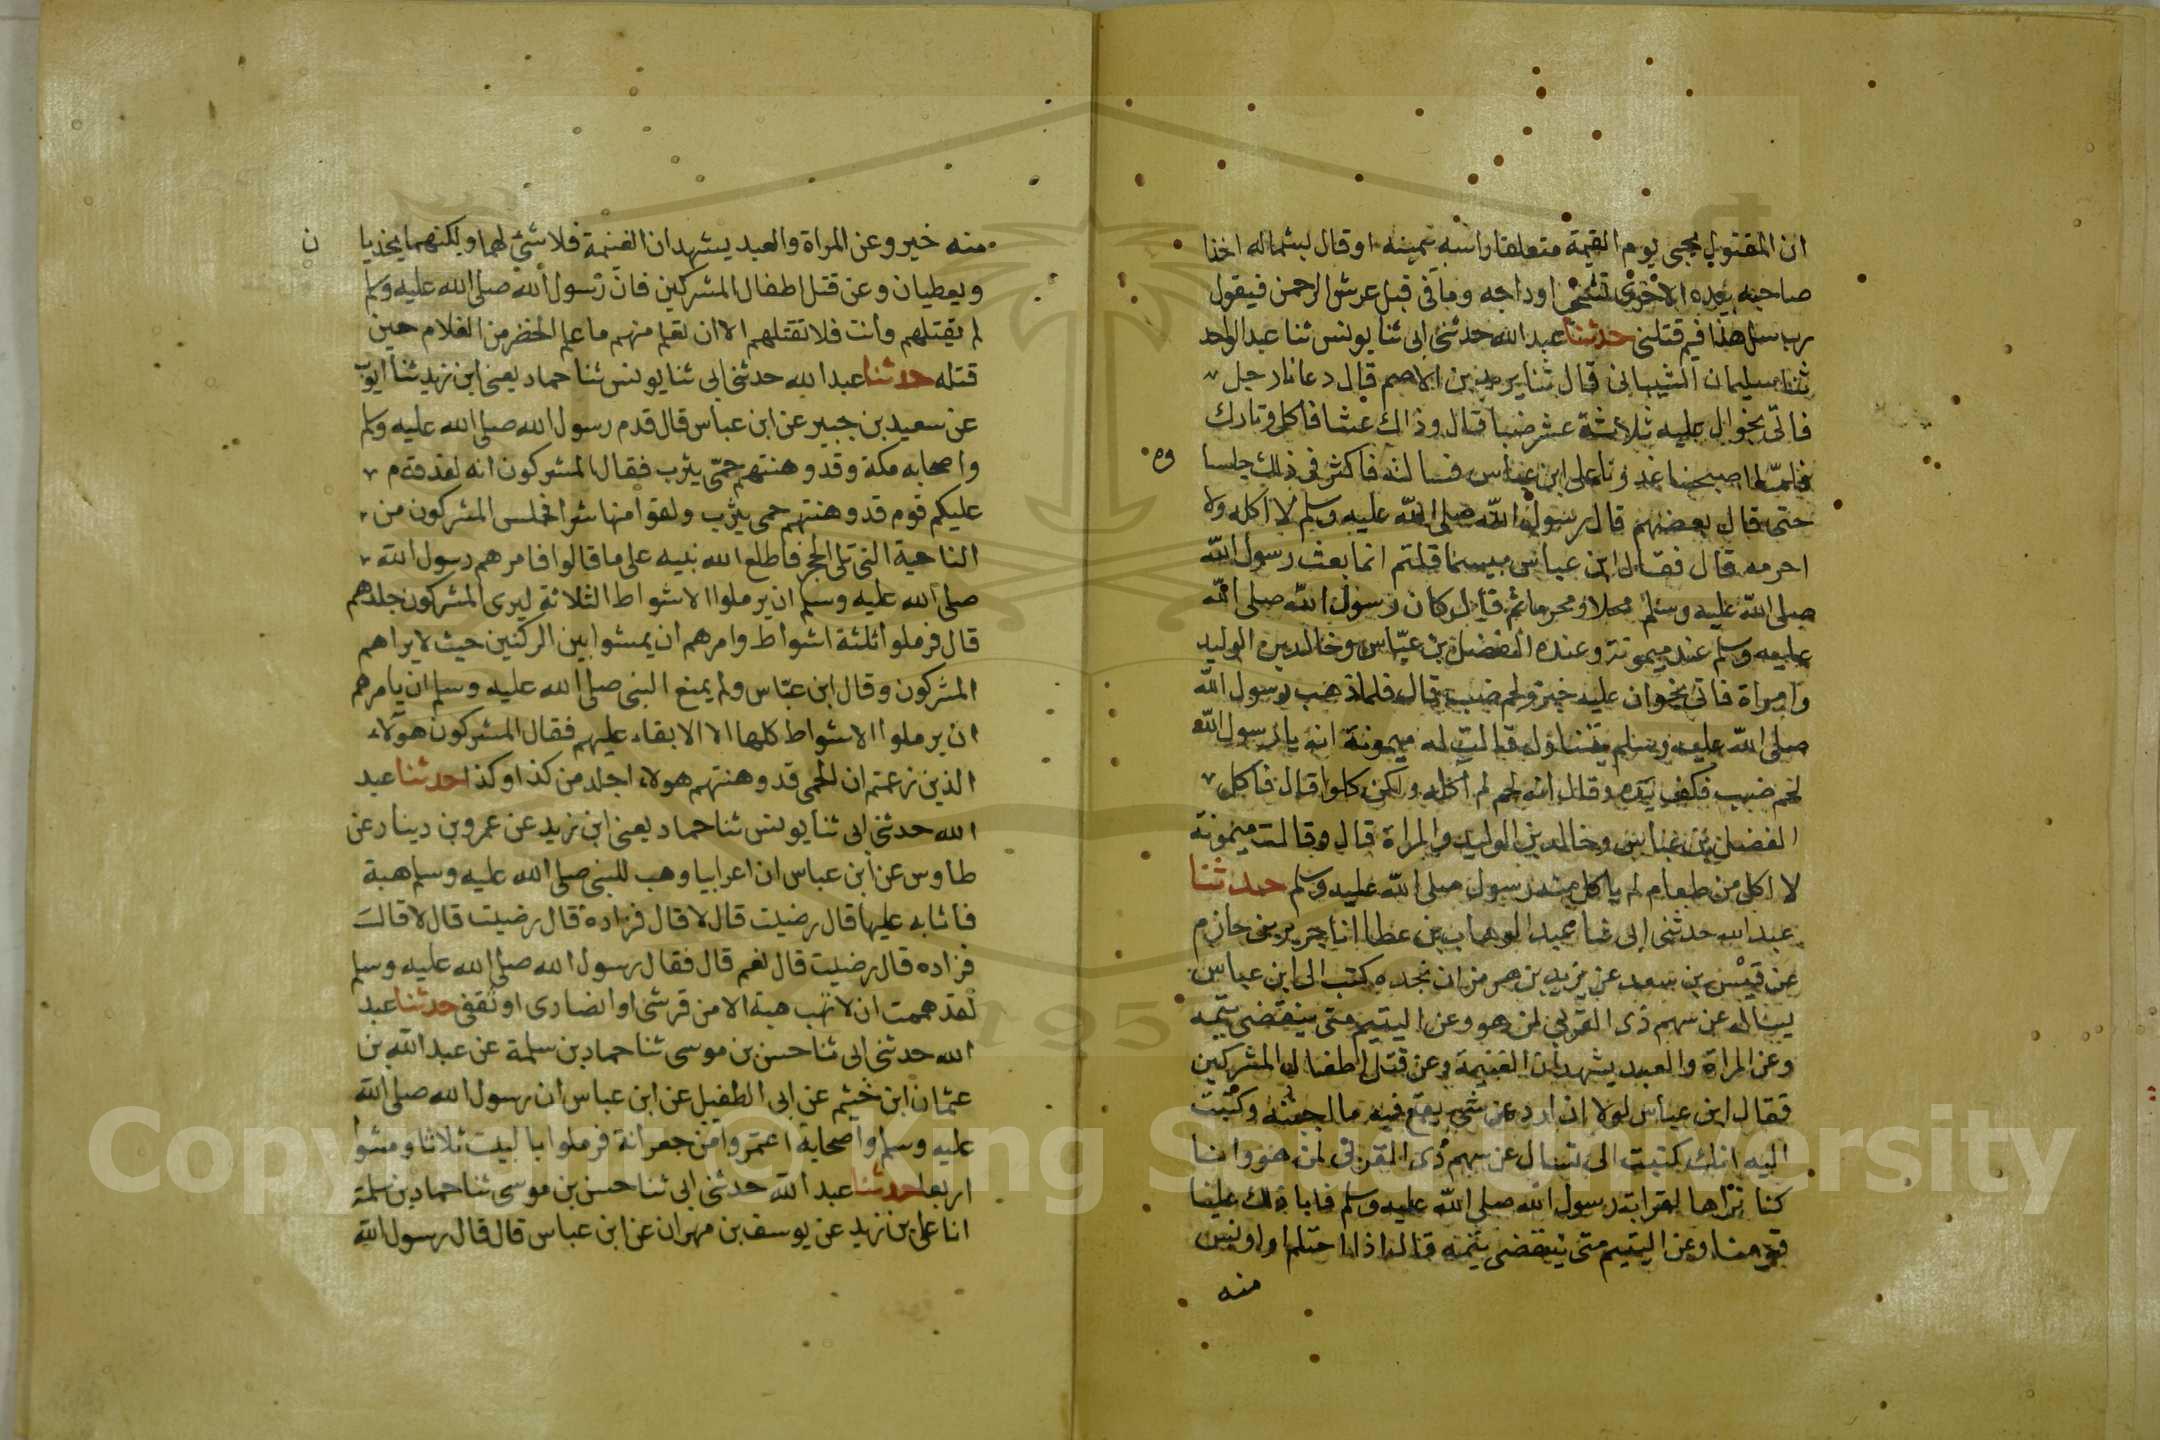 ان المقتول يجى يوم القيمة متعلقا راسه بيمينه اوقال بشماله اخذا
صاحبه بيده الاخرى تشخب اوداجه وما فى قبل عرش الرحمن فيقول
رب سل هذا فيم قتلنى حدثنا عبد الله حدثنى ابى ثنا يونس ثنا عبد الواحد
ثنا سليمان الشيبانى قال ثنا يزيد بن الاصم قال دعانا رجل
فاتى بخوان عليه ثلاثة عشر ضبا قال وذاك عشا فاكل وتارك
فلما اصبحنا غدونا على ابن عباس فسالته فاكثر فى ذلك جلسا
وه
حتى قال بعضهم قال رسول الله صلى الله عليه وسلم لا اكله ولا
احرمه قال فقال ابن عباس بيسما قلتم انما بعث رسول الله
صلى الله عليه وسلم محلا ومحرما ثم قال كان رسول الله صلى الله
عليه وسلم عند ميمونة وعنده الفضل بن عباس وخالد بن الوليد
وامراة فاتى بخوان عليه خبز ولحم ضب قال فلما ذهب رسول الله
صلى الله عليه وسلم يتناول قالت له ميمونة انه يا رسول الله
لحم ضب فكف يده وقال انه لحم لم اكله ولكن كلوا قال فاكل
الفضل بن عباس وخالد بن الوليد والمراة قال وقالت ميمونة
لا اكل من طعام لم ياكل منه رسول صلى الله عليه وسلم حدثنا
عبد الله حدثنى ابى ثنا عبد الوهاب بن عطا انا جرير بن حازم
عن قيس بن سعد عن يزيد بن هرمز ان نجده كتب الى ابن عباس
يساله عن سهم ذى القربى لمن هو وعن اليتيم متى ينقضى يتمه
وعن المراة والعبد يشهدان الغنيمة وعن قتل اطفال المشركين
فقال ابن عباس لولا ان ارده عن شى يقع فيه ما اجبته وكتبت
اليه انك كتبت الى تسال عن سهم ذى القربى لمن هو وانا
كنا نراها لقرابة رسول الله صلى الله عليه وسلم فابا ذلك علينا
قومنا وعن اليتيم متى ينقضى يتمه قال اذا احتلم او اونس
منه
منه خير وعن المراة والعبد يشهدان الغنيمة فلا شئ لهما ولكنهما يحذيا
ن
ويعطيان وعن قتل اطفال المشركين فان رسول الله صلى الله عليه وسلم
لم يقتلهم وانت فلا تقتلهم الا ان تعلم منهم ما علم الخضر من الغلام حين
قتله حدثنا عبد الله حدثنى ابى ثنا يونس ثنا حماد يعنى ابن زيد ثنا ايوب
عن سعيد بن جبير عن ابن عباس قال قدم رسول الله صلى الله عليه وسلم
واصحابه مكة وقد وهنتهم حمى يثرب فقال المشركون انه لقد قدم
عليكم قوم قد وهنتهم حمى يثرب ولقوا منها شرا فجلس المشركون من
الناحية التى تلى الحجر فاطلع الله نبيه على ما قالوا فامرهم رسول الله
صلى الله عليه وسلم ان يرملوا الاشواط الثلاثة ليرى المشركون جلدهم
قال فرملوا ثلثة اشواط وامرهم ان يمشوا بين الركنين حيث لا يراهم
المشركون وقال ابن عباس ولم يمنع النبى صلى الله عليه وسلم ان يامرهم
ان يرملوا الاشواط كلها الا الابقاء عليهم فقال المشركون هولاء
الذين زعمتم ان الحمى قد وهنتهم هولاء اجلد من كذا وكذا حدثنا عبد
الله حدثنى ابى ثنا يونس ثنا حماد يعنى ابن زيد عن عمرو بن دينار عن
طاوس عن ابن عباس ان اعرابيا وهب للنبى صلى الله عليه وسلم هبة
فاثابه عليها قال رضيت قال لا قال فزاده قال رضيت قال لا قالت
فزاده قال رضيت قال نعم قال فقال رسول الله صلى الله عليه وسلم
لقد هممت ان لا تهب هبة الا من قرشى او انصارى او ثقفى حدثنا عبد
الله حدثنى ابى ثنا حسن بن موسى ثنا حماد بن سلمة عن عبد الله بن
عثمان ابن خثيم عن ابى الطفيل عن ابن عباس ان رسول الله صلى الله
عليه وسلم واصحابة اعتمروا من جعرانة فرملوا بالبيت ثلاثا ومشوا
اربعا حدثنا عبد الله حدثنى ابى ثنا حسن بن موسى ثنا حماد بن سلمة
انا على بن زيد عن يوسف بن مهران عن ابن عباس قال قال رسول الله
Copyright © King Saud University
1957